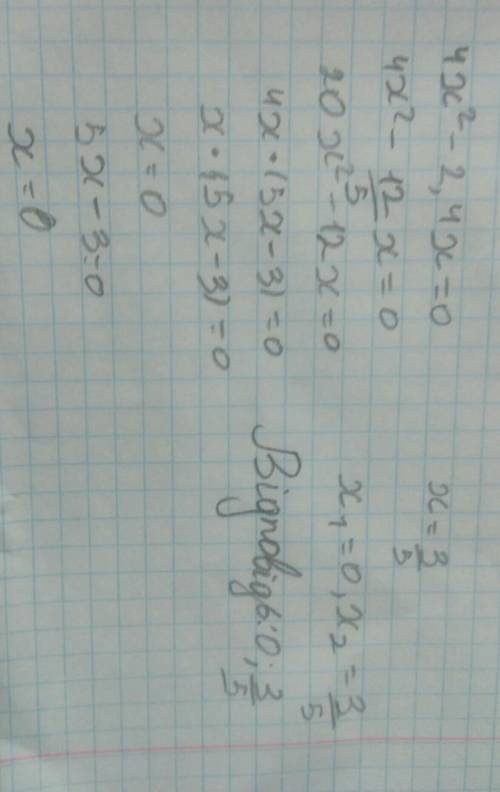 4x² - 2,4x = 0
4x² - 12/5 x = 0
20x² - 12x = 0
4x · (5x - 3) = 0
x · (5x - 3) = 0
x = 0
5x - 3 = 0
x = 0
x = 3/5
x₁ = 0, x₂ = 3/5
Відповідь: 0, 3/5